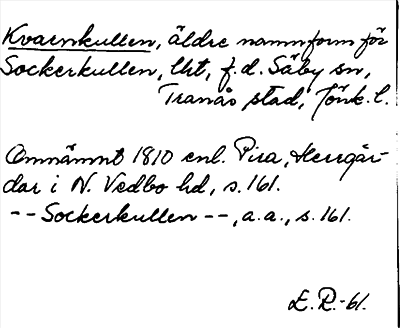 Kvarnkullen, äldre namnform för
Sockerkullen, lht, f.d. Säby sn,
Tranås stad, Jönk. l.
Omnämnt 1810 enl. Pira, Herrgår-
dar i N. Vedbo hd, s. 161.
-- Sockerkullen --, a.a., s. 161.
E. R. -61.